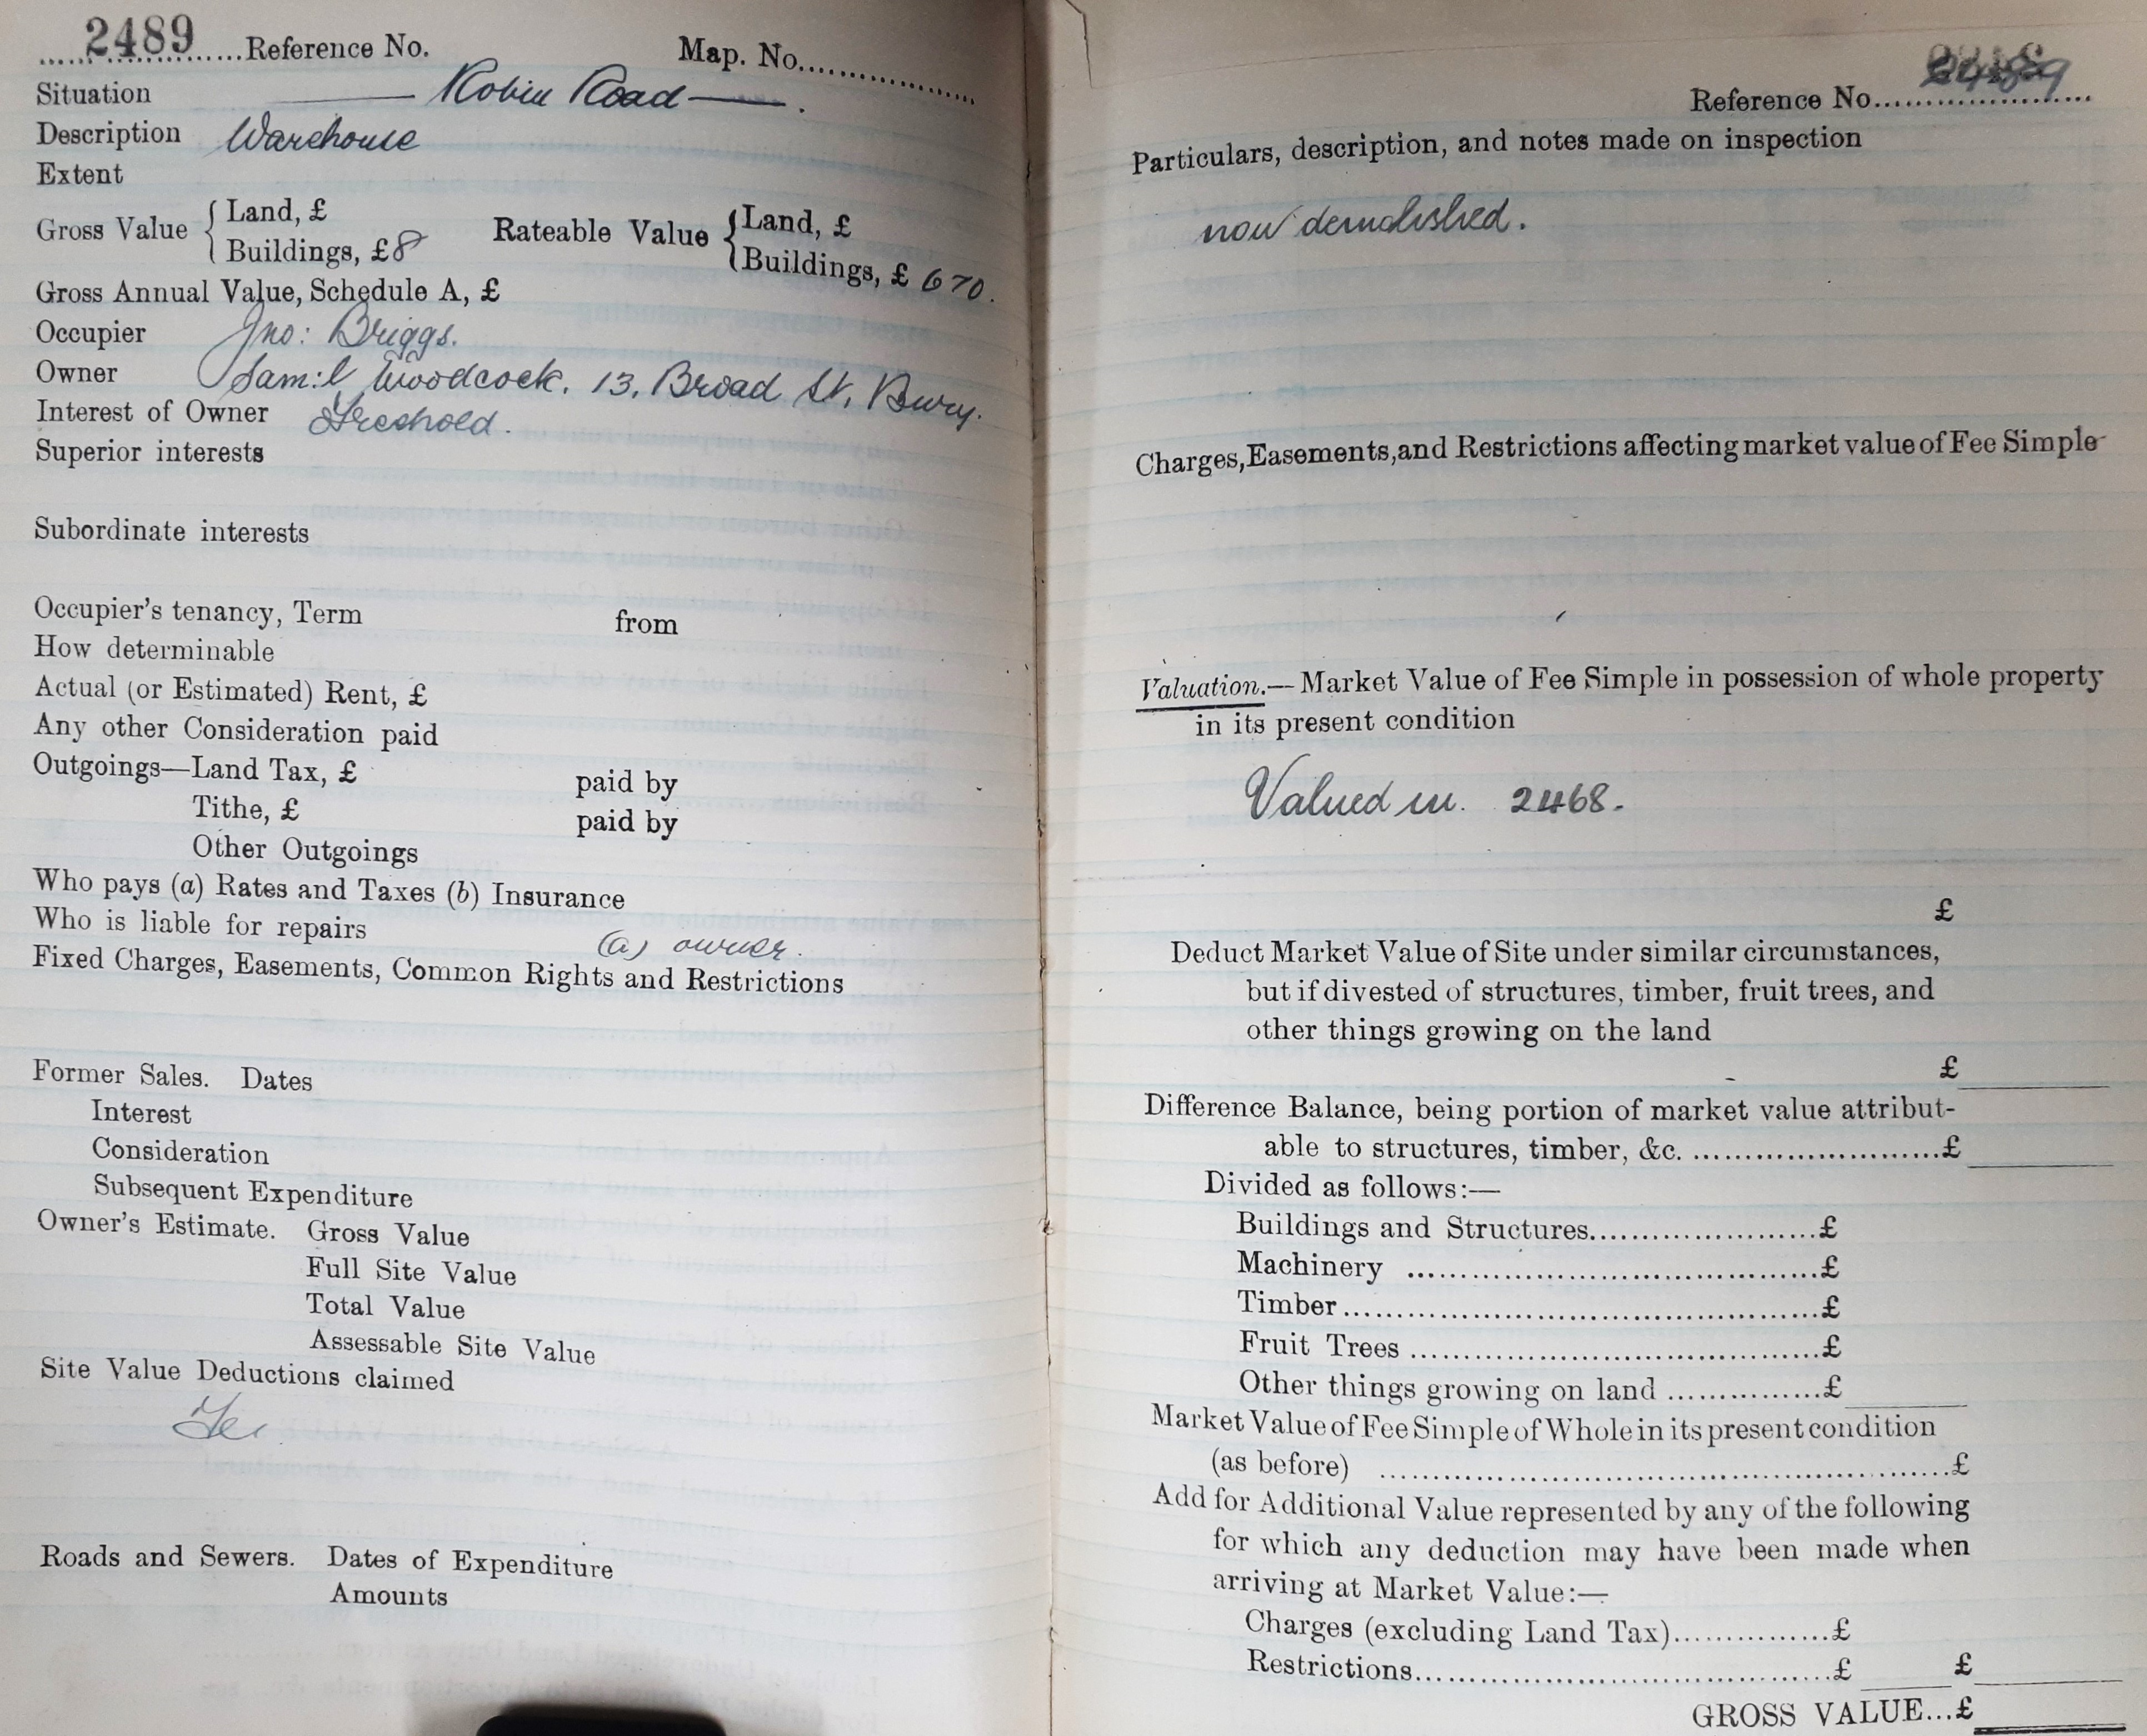 2489 Reference No. Map. No.
Situation — Robin Road — .
Description Warehouse
Extent
Gross Value { Land, £ Rateable Value { Land, £
Buildings, £ 8 Buildings, £ 6 70.
Gross Annual Value, Schedule A, £
Occupier Jno: Briggs.
Owner Sam:l Woodcock. 13, Broad St, Bury.
Interest of Owner Freehold.
Superior interests
Subordinate interests
Occupier's tenancy, Term from
How determinable
Actual (or Estimated) Rent, £
Any other Consideration paid
Outgoings—Land Tax, £ paid by
Tithe, £ paid by
Other Outgoings
Who pays (a) Rates and Taxes (b) Insurance
Who is liable for repairs (a) owner.
Fixed Charges, Easements, Common Rights and Restrictions
Former Sales. Dates
Interest
Consideration
Subsequent Expenditure
Owner's Estimate. Gross Value
Full Site Value
Total Value
Assessable Site Value
Site Value Deductions claimed
Roads and Sewers. Dates of Expenditure
Amounts
Reference No. 2489
Particulars, description, and notes made on inspection
now demolished.
Charges, Easements, and Restrictions affecting market value of Fee Simple
Valuation.—Market Value of Fee Simple in possession of whole property
in its present condition
Valued in. 2468.
£
Deduct Market Value of Site under similar circumstances,
but if divested of structures, timber, fruit trees, and
other things growing on the land
£
Difference Balance, being portion of market value attribut-
able to structures, timber, &c. £
Divided as follows:—
Buildings and Structures £
Machinery £
Timber £
Fruit Trees £
Other things growing on land £
Market Value of Fee Simple of Whole in its present condition
(as before) £
Add for Additional Value represented by any of the following
for which any deduction may have been made when
arriving at Market Value:—
Charges (excluding Land Tax) £
Restrictions £ £
GROSS VALUE...£